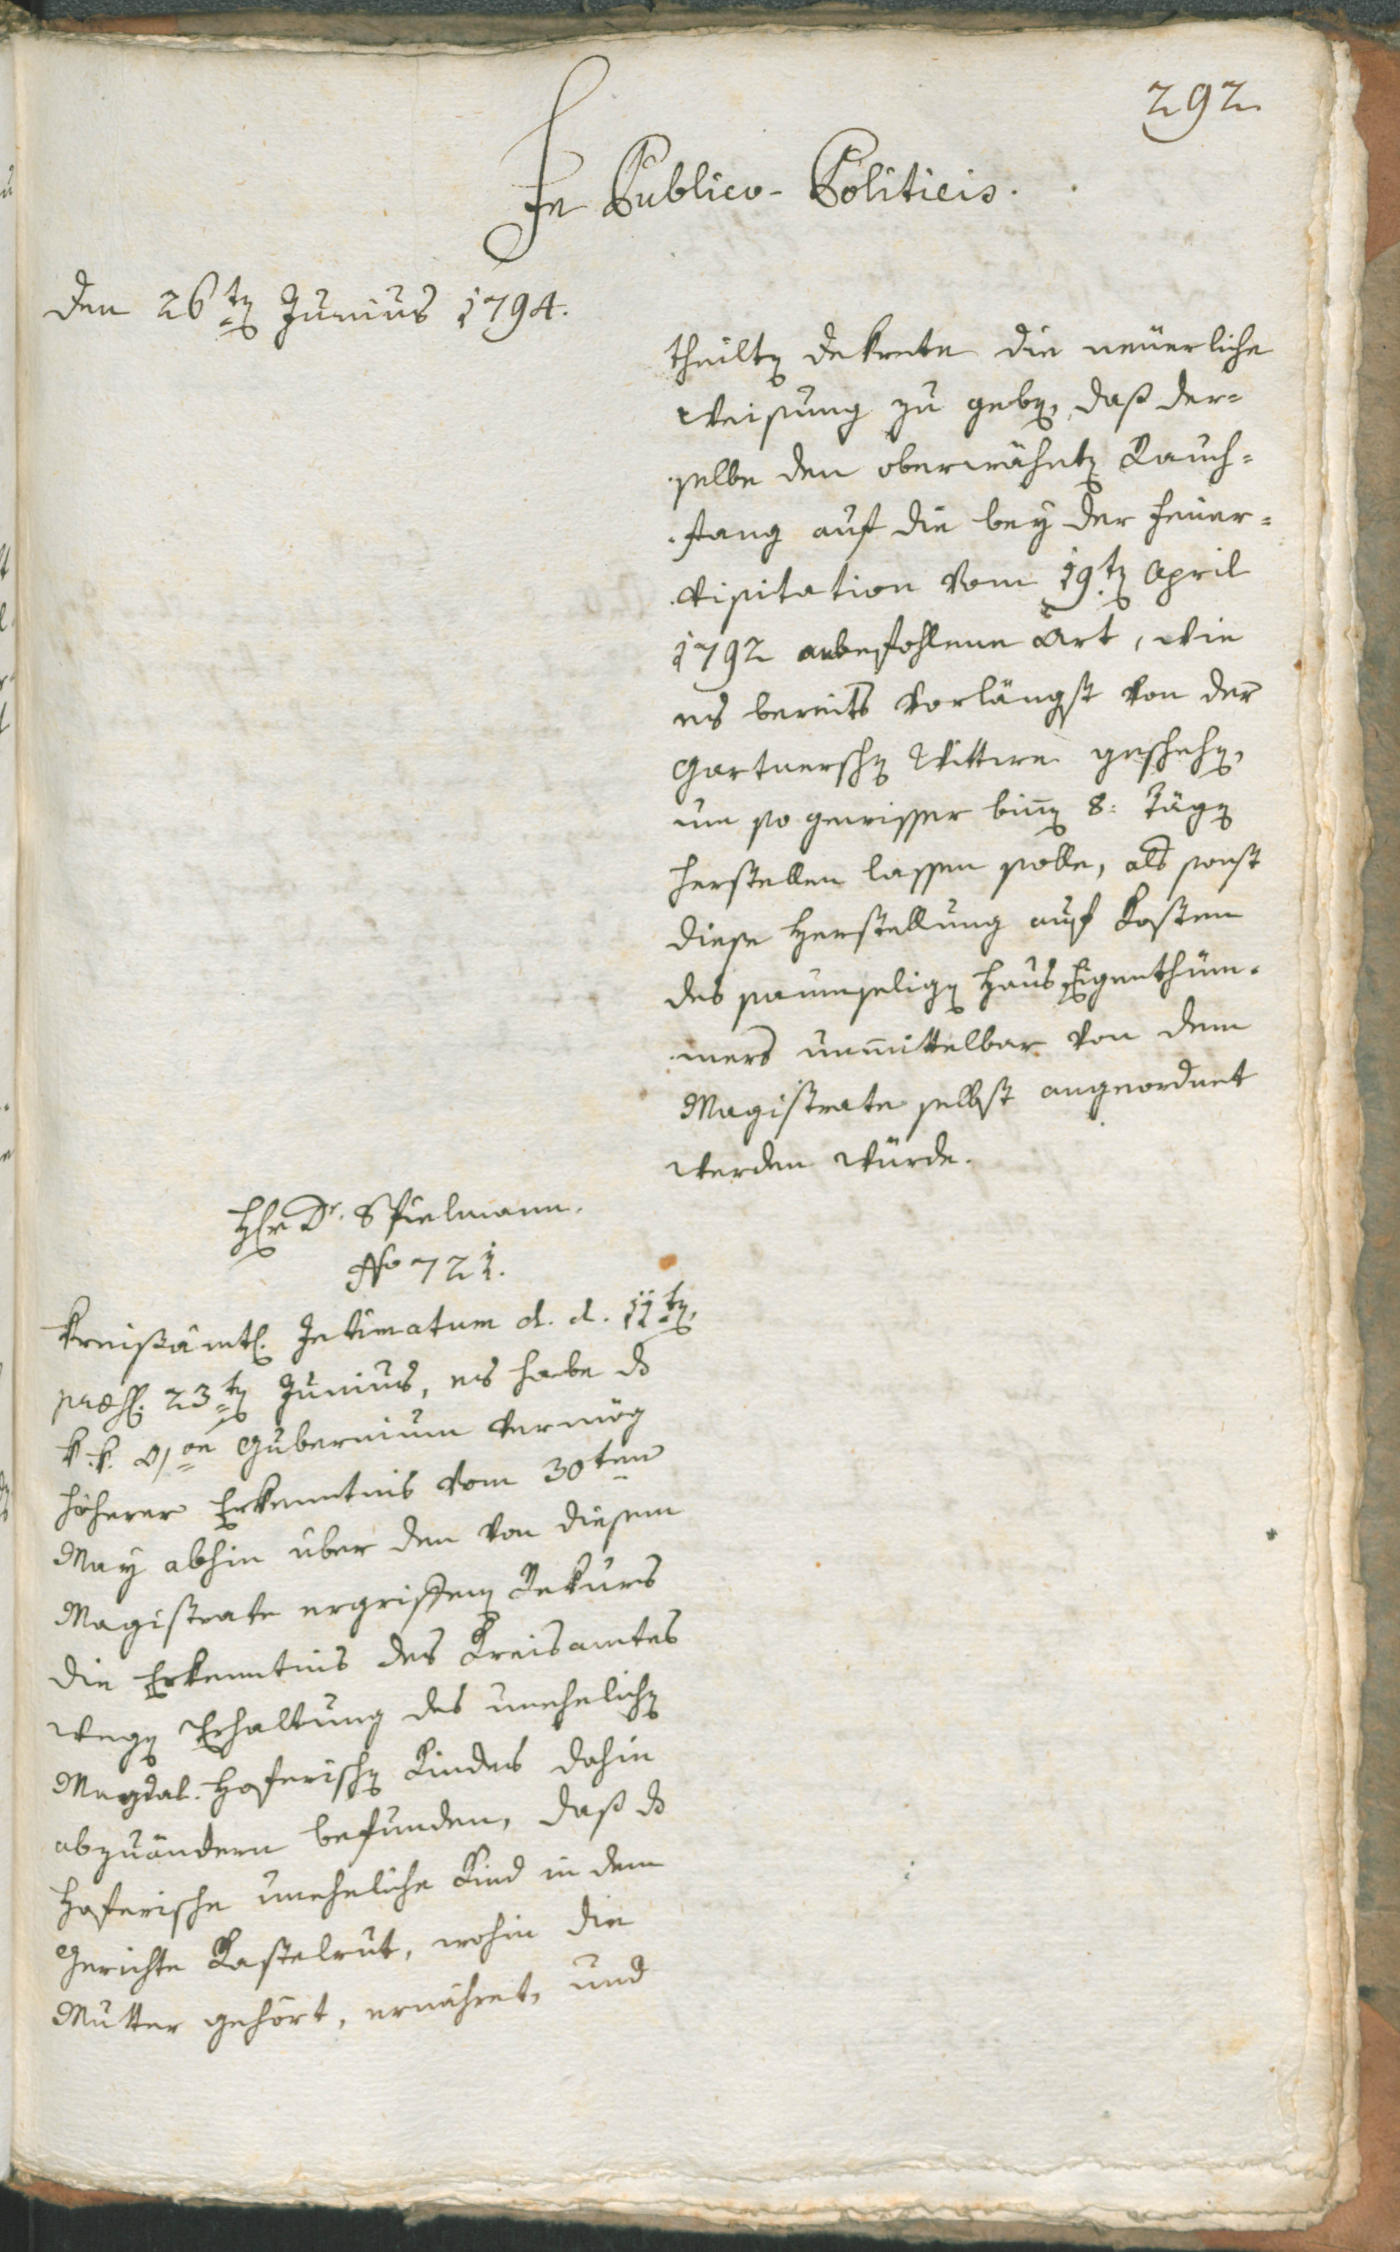 292.
In Publico-Politicis.
Den 26ten Junius 1794.
theilten Dekrete die neüerliche
Weisung zu geben, daß der=
selbe den oberwähnten Rauch=
fang auf die bey der Feüer=
visitation vom 19ten April
1792 anbefohlene Art, wie
es bereits vorlängst von der
Gartnerschen Wittwe geschehen,
um so gewisser binnen 8: Tägen
herstellen lassen solle, als sonst
diese Herstellung auf Kosten
des saumseligen Haus Eigenthüm=
mers unmittelbar von dem
Magistrate selbst angeordnet
werden würde.
Herr Dr. Spielmann.
No 721.
Kreißämtl. Intimatum d. d. 11ten,
præs. 23ten Junius, es habe das
k. k. Gubernium vermög
höherer Erkenntnis vom 30ten
May abhin über den von diesem
Magistrate ergriffenen Rekurs
die Erkenntnis des Kreisamtes
wegen Erhaltung des unehelichen
Magdal. Hoferischen Kindes dahin
abzuändern befunden, daß das
Hoferische uneheliche Kind in dem
Gerichte Kastelrut, wohin die
Mutter gehört, ernähret, und